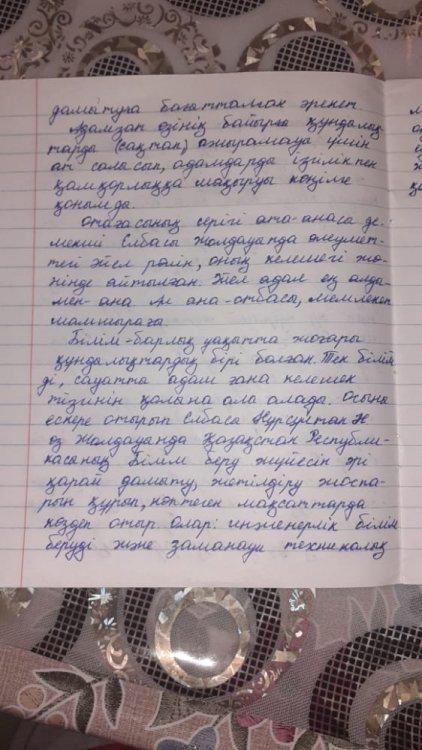 дамытуға бағатталған әрекет
Адамзат өзінің байырғы құндалық
тарды (сақтап) ажырамауы үшін
ат салысып, адамдарды ізгілікпен
қамқорлыққа шақыруы көңілге
қонымды.
Отағасының серігі ата-анасы де-
мекші Елбасы жолдауында әлеумет-
тегі әйел рөлін, оның келешегі жө-
нінде айтылған. Әйел адам ең алды-
мен-ана ал ана-отбасы, мемлекет
шамшырағы.
Білім-барлық уақытта жоғары
құндалықтардың бірі болған. Тек білім
ді, сауатты адам ғана келешек
тізгінін қолына ала алады. Осыны
ескере отырып Елбасы Нурсултан Н.
өз жолдауында Қазақстан Республи-
касының Білім беру жүйесін әрі
қарай дамыту, жетілдіру жоспа-
рын құрып, көптеген мақсаттарды
көздеп отыр олар: инженерлік білім
беруді және заманауи техникалық